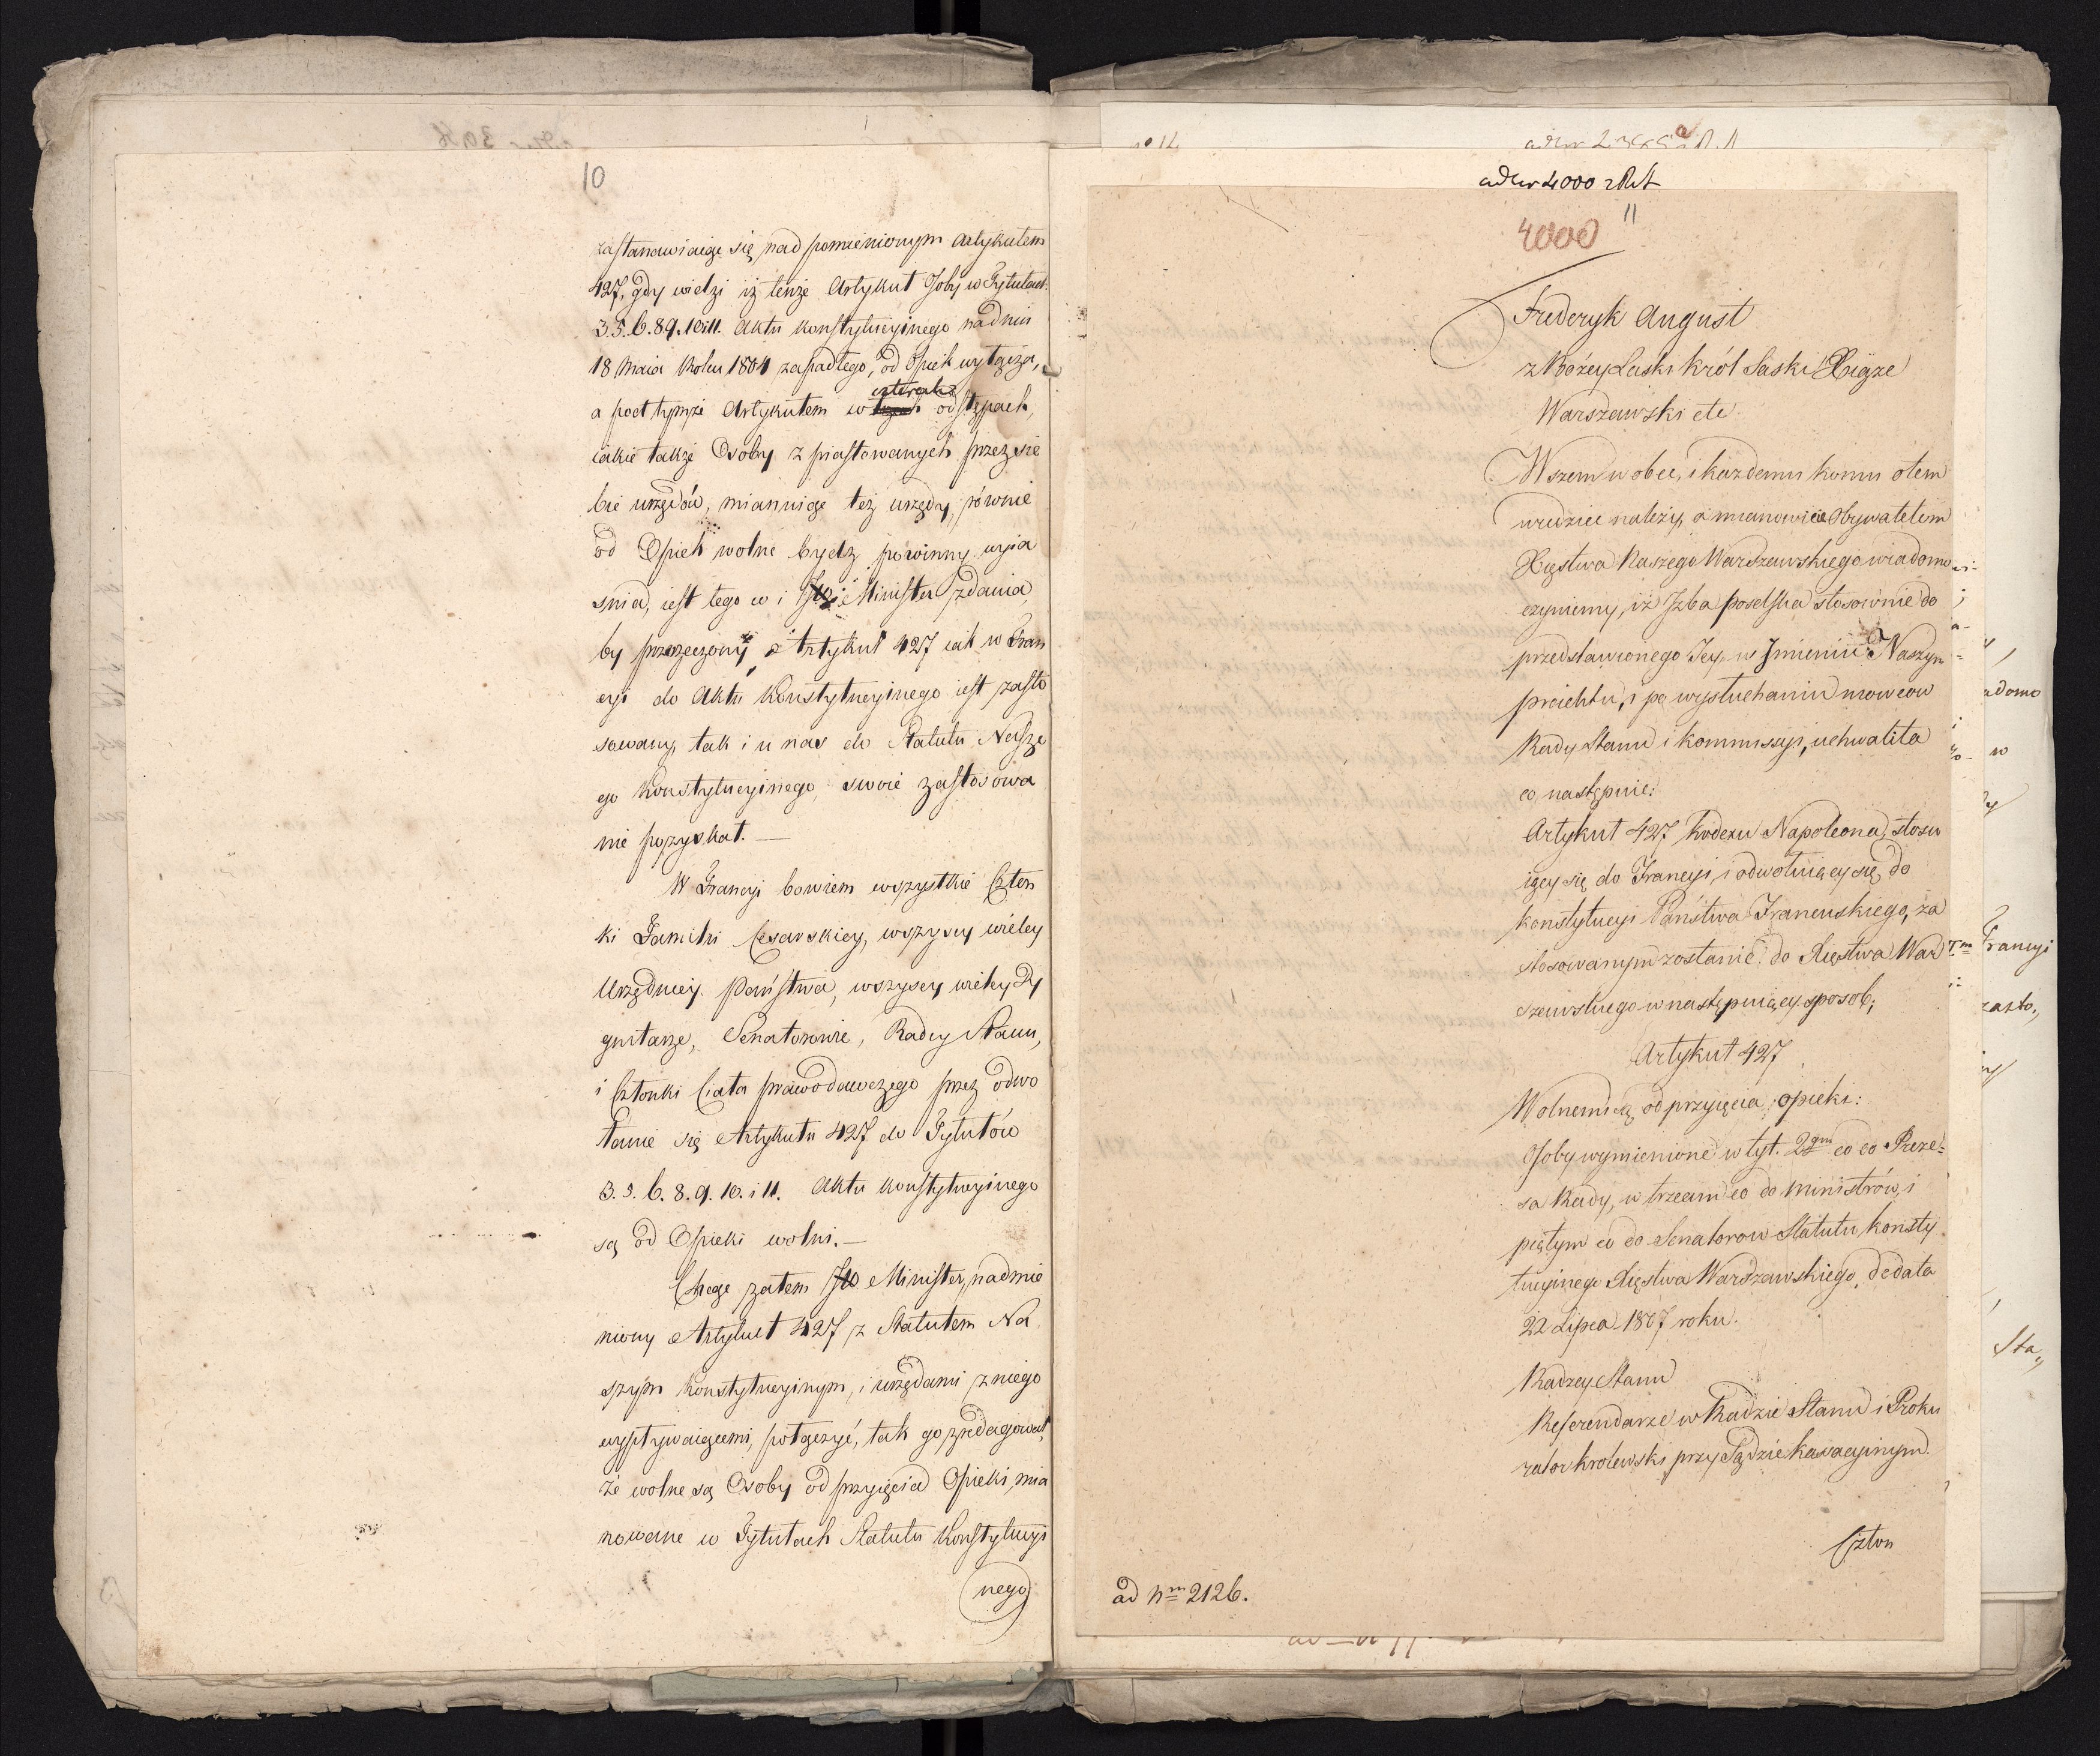 10
zastanawiaiąc się nad pomienionym Artykułem
427, gdy widzi iż tenże Artykuł Osoby w Tytułach
3.5.6.8.9.10 i 11. Aktu konstytucyinego na dniu
18 Maia Roku 1804 zapadłego, od Opiek wyłącza,
a pod tymże Artykułem w czterech odstępach,
iakie także Osoby z piastowanych przez sie
bie urzędów, mianuiąc też urzędy, równie
od Opiek wolne bydz powinny wyia
śnia, iest tego w i JW Minister zdania,
by przerzeczony Artykuł 427 iak w Fran
cyi do Aktu Konstytucyinego iest zasto
sowany, tak i u nas do Statutu Nasze
go Konstytucyinego, swoie zastosowa
nie pozyskał. —
W Francyi bowiem wszystkie Człon
ki Familii Cesarskiey, wszyscy wielcy
Urzędnicy Państwa, wszyscy wielcy Dy
gnitarze, Senatorowie, Radcy Stanu,
i Członki Ciała prawodawczego przez odwo
łanie się Artykułu 427 do Tytułów
3. 5. 6. 8. 9. 10. i 11. Aktu konstytucyinego
są od Opieki wolni. —
Chcąc zatem JW Minister, nadmie
niony Artykuł 427 z Statutem Na
szym Konstytucyinym, i urzędami z niego
wypływaiącemi, połączyć, tak go zredagował,
że wolne są Osoby od przyięcia Opieki, mia
nowane w Tytułach Statutu Konstytucyi
nego
4000
11
Fryderyk August
z Bożey Łaski król Saski Xiąże
Warszawski etc
Wszem w obec, i każdemu komu o tem
wiedziec należy, a mianowicie Obywatelem
Xięstwa Naszego Warszawskiego wiadomo
czyniemy, iż Izba poselska stosownie do
przedstawionego Jey, w Imieniu Naszym
proiektu, i po wysłuchaniu mowcow
Rady Stanu i kommissyi, uchwaliła
co następuie:
Artykuł 427 kodexu Napoleona, stosu
iący się do Francyi, i odwołuiący się do
konstytucyi Państwa Francuskiego, za
stosowanym zostanie do Xięstwa War
szawskiego w następuiący sposob;
Artykuł 427
Wolnemi są od przyięcia opieki:
Osoby wymienione w tyt. 2gm co do Preze=
sa Rady, w trzecim co do ministrów, i
piątym co do Senatorow Statutu konsty
tucyinego Xięstwa Warszawskiego, de data
22 Lipca 1807 roku.
Radzcy Stanu
Referendarze w Radzie Stanu i Proku
rator krolewski przy Sądzie kassacyinym.
Człon
ad Nm 2126.